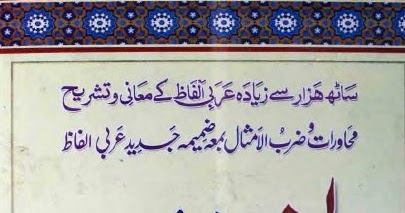 ساٹھ هزار سے زیادہ عَرَبی اَلفاظ کے معَانی و تشریح
محاورات و ضربُ الاَمثال بمعہ ضمیمہ جَدید عَربی الفاظ